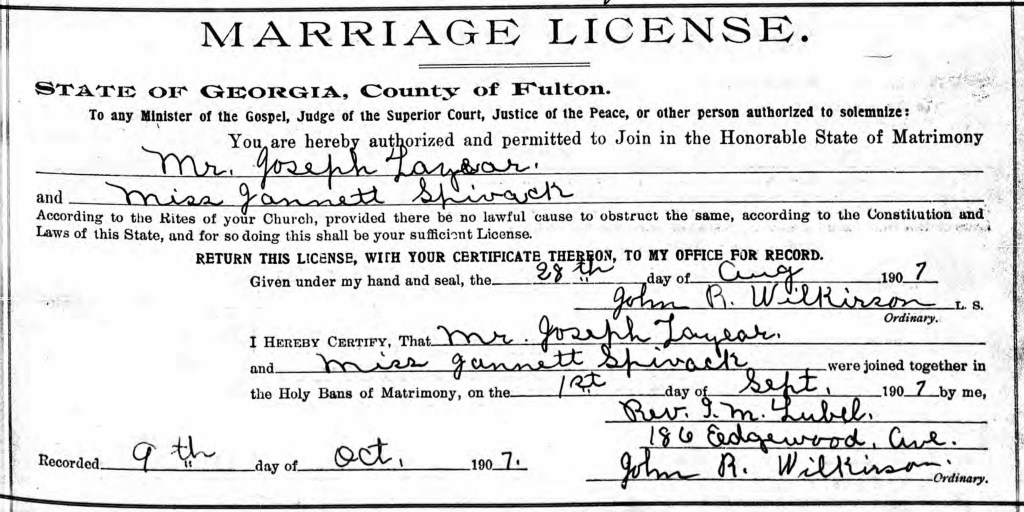 MARRIAGE LICENSE.
STATE OF GEORGIA, County of Fulton.
To any Minister of the Gospel, Judge of the Superior Court, Justice of the Peace, or other person authorized to solemnize:
You are hereby authorized and permitted to Join in the Honorable State of Matrimony
Mr. Joseph Layear.
and Miss Jannett Spivack
According to the Rites of your Church, provided there be no lawful cause to obstruct the same, according to the Constitution and
Laws of this State, and for so doing this shall be your sufficient License.
RETURN THIS LICENSE, WITH YOUR CERTIFICATE THEREON, TO MY OFFICE FOR RECORD.
Given under my hand and seal, the 28th day of Aug 1907
John R. Wilkirson L. S.
Ordinary.
I HEREBY CERTIFY, That Mr. Joseph Layear.
and Miss Jannett Spivack were joined together in
the Holy Bans of Matrimony, on the 1st day of Sept. 1907 by me,
Rev. I. M. Lubel.
186 Eedgewood. Ave.
Recorded 9th day of Oct. 1907.
John R. Wilkirson.
Ordinary.